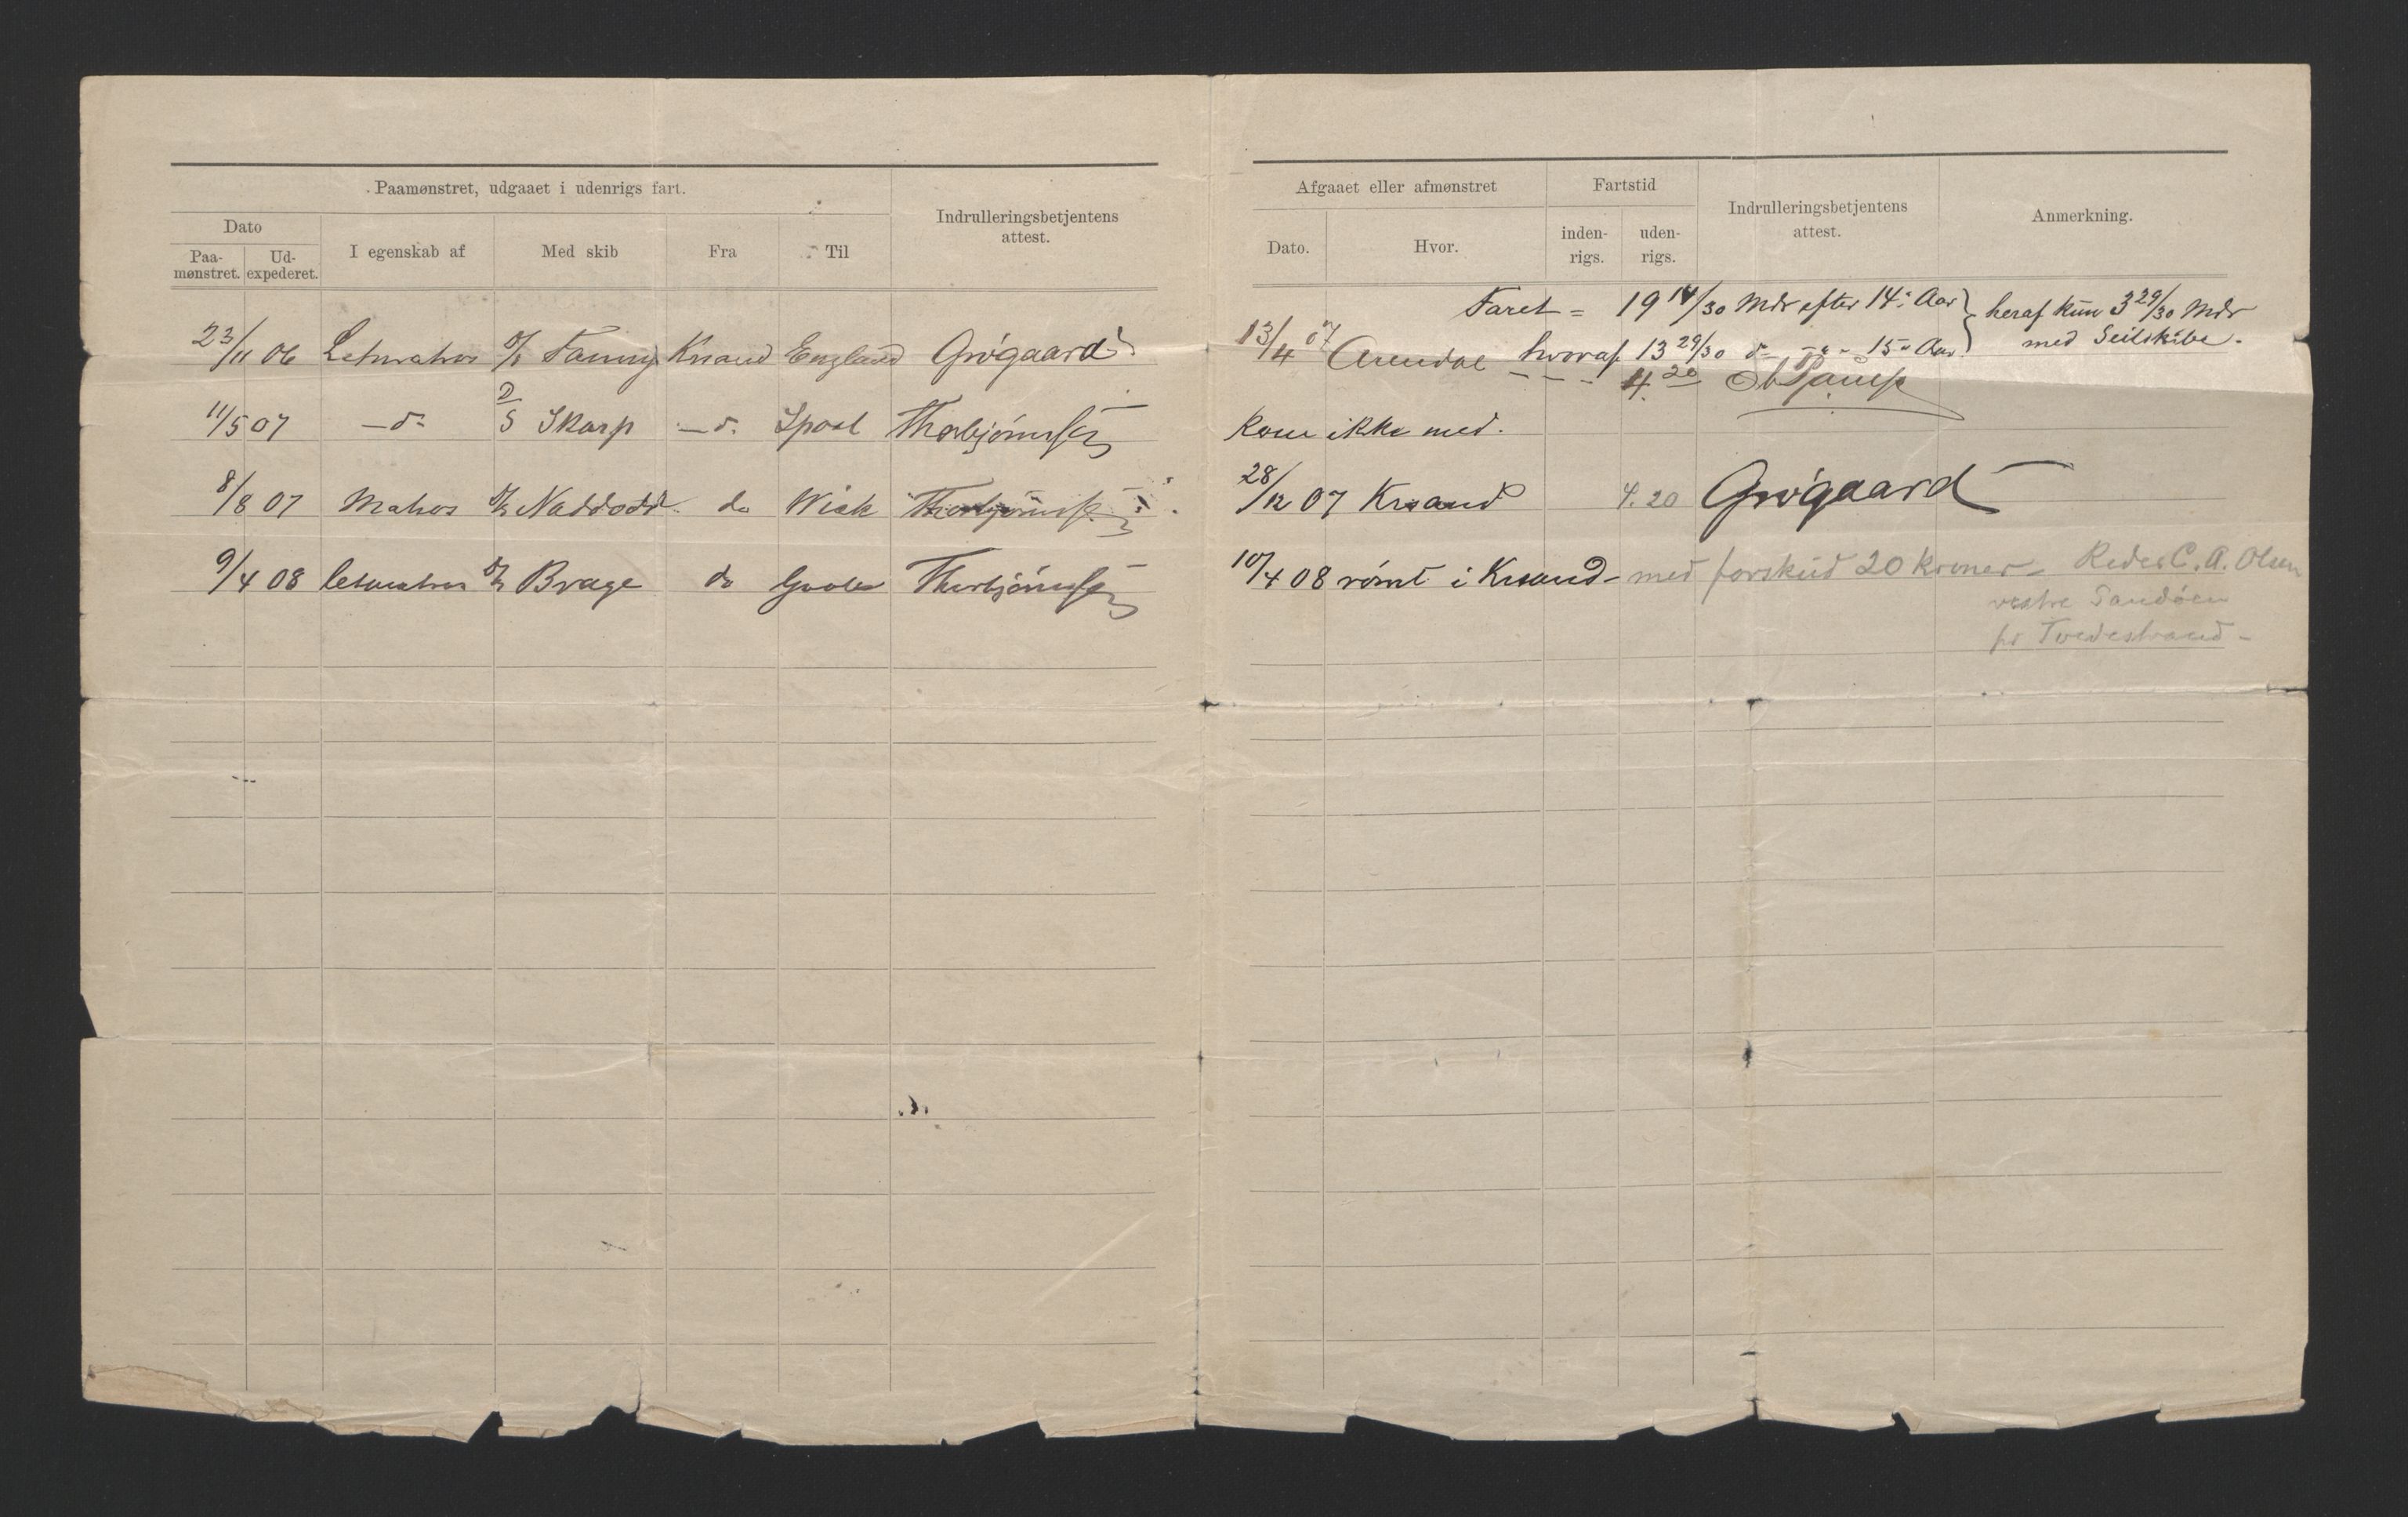 Paamønstret, udgaaet i udenrigs fart.
Indrulleringsbetjentens attest.
Dato
Paa-mønstret.
Ud-expederet.
I egenskab af
Med skib
Fra
Til
23/11 06 Letmatros S/S Fanny Krsand England Grøgaard
11/5 07 — do D/S Skarp — do. Spool Thorbjørnsen
8/8 07 Matros S/S Naddodd do Wisk Thorbjørnsen
9/4 08 letmatros S/S Brage do Goole Thorbjørnsen
Afgaaet eller afmønstret
Fartstid
Indrulleringsbetjentens attest.
Anmerkning.
Dato.
Hvor.
inden-rigs.
uden-rigs.
Faret = 19 14/30 Mdr efter 14: Aar } heraf kun 3 29/30 Mdr
13/4 07 Arendal hvoraf 13 29/30 do - " - 15 " Aar. } med Seilskibe.
4.20
Kom ikke med.
28/12 07 Krsand 4.20 Grøgaard
10/4 08 rømt i Krsand - med forskud 20 kroner - Reder C. A. Olsen
vestre Sandøen
pr Tvedestrand -